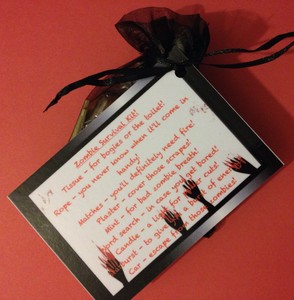 Zombie Survival Kit!
Tissue - for bogies or the toilet!
Rope - you never know when it'll come in
handy!
Matches - you'll definitely need fire!
Plaster - cover those scrapes!
Mint - for bad zombie breath!
Word search - in case you get bored!
Candle - a light for your cuts!
- to give you a burst of energy
Car - escape from those zombies!